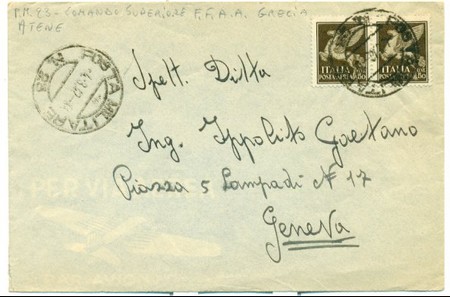 P.M. 23 - COMANDO SUPERIORE F.F.A.A. GRECIA
ATENE
POSTA MILITARE N. 23
ITALIA
POSTA AEREA
ITALIA
POSTA AEREA
Spett. Ditta
Ing. Ippolito Gaetano
Piazza 5 Lampadi N 17
Geneva
PER VI